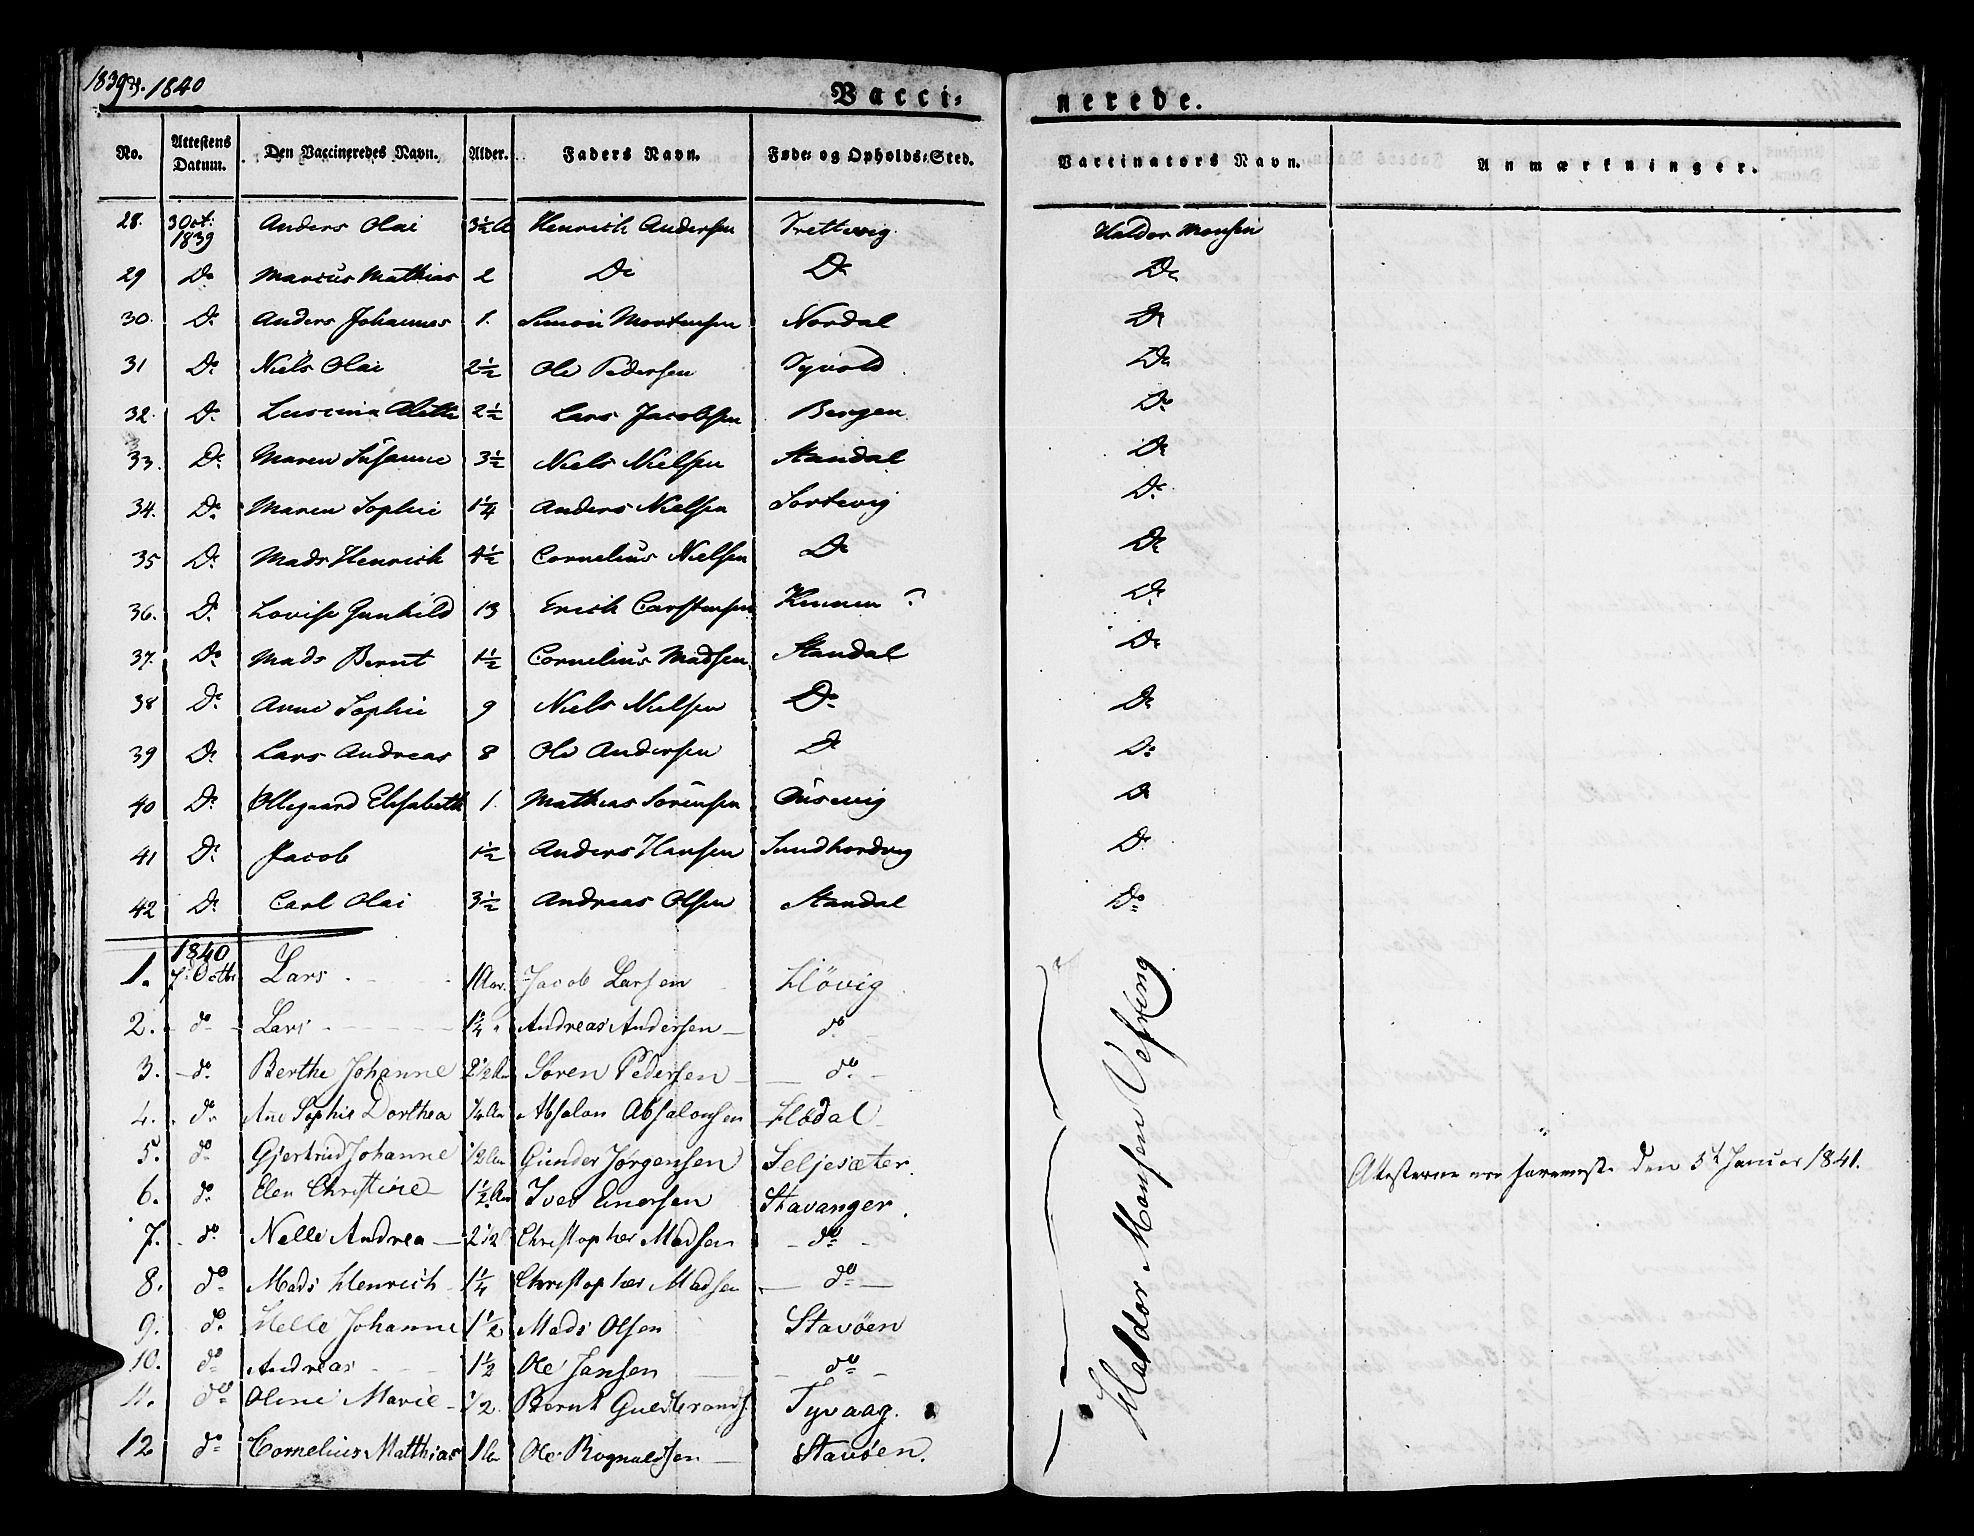 1839 og 1840
Vacci-
nerede.
No.
Attestens Datum.
Den Vaccineredes Navn.
Alder.
Faders Navn.
Føde- og Opholds-Sted.
Vaccinators Navn.
Anmærkninger.
28. 3 Oct: 1839 Anders Olai 3½ A Henrich Andersen Trettevig Haldor Monsen
29 Do Marcus Mathias 2 Do Do Do
30. Do Anders Johannes 1. Simon Mortensen Nordal Do
31 Do Niels Olai 2½ Ole Pedersen Tyvold Do
32. Do Lars Jacobsen 2½ Bergen Do
33. Do Maren Susanne 3½ Niels Nielsen Standal Do
34. Do Maren Sophie 1¼ Anders Nielsen Sortevig Do
35 Do Mads Henrich 4½ Cornelius Nielsen Do Do
36. Do Lovise Gunhild 13 Erich Carstensen Kinnen ? Do
37. Do Mads Bernt 1½ Cornelius Madsen Standal Do
38 Do Anne Sophie 9 Niels Nielsen Do Do
39 Do Lars Andreas 8 Ole Andersen Do Do
40 Do Ollegaard Elisabeth 1. Mathias Sørensen Do
41 Do Jacob 1½ Anders Hansen Do
42 Do Carl Olai 3½ Andreas Olsen Standal Do
1840
1. 7. Octbr Lars 1 Aar. Jacob Larsen Høvig
2. do Lars 1¼ " Andreas Andersen do
3. do Berthe Johanne 2½ Søren Pedersen do
4. do Ane Sophie Dorthea ¼ Absalon Absalonsen Hødal
5. do Gjertrud Johanne ½ Gunder Jørgensen Seljesæter
6. do Elen Christine 1½ Iver Enersen Stavanger.
7. do Nelle Andrea 2½ Christopher Madsen do
8. do Mads Henrich 1¼ Christopher Madsen do
9. do Helle Johanne 1½ Mads Olsen Stavøen
10. do Andreas 1½ Ole Jansen do
11. do Oline Marie ½ Bernt Guldbrands. Tyvaag.
12 do Cornelius Matthias 1 Ole Rognaldsen Stavøen.
Haldor Monsen Vefring
Attesterne ere foreviist den 5t Januar 1841.